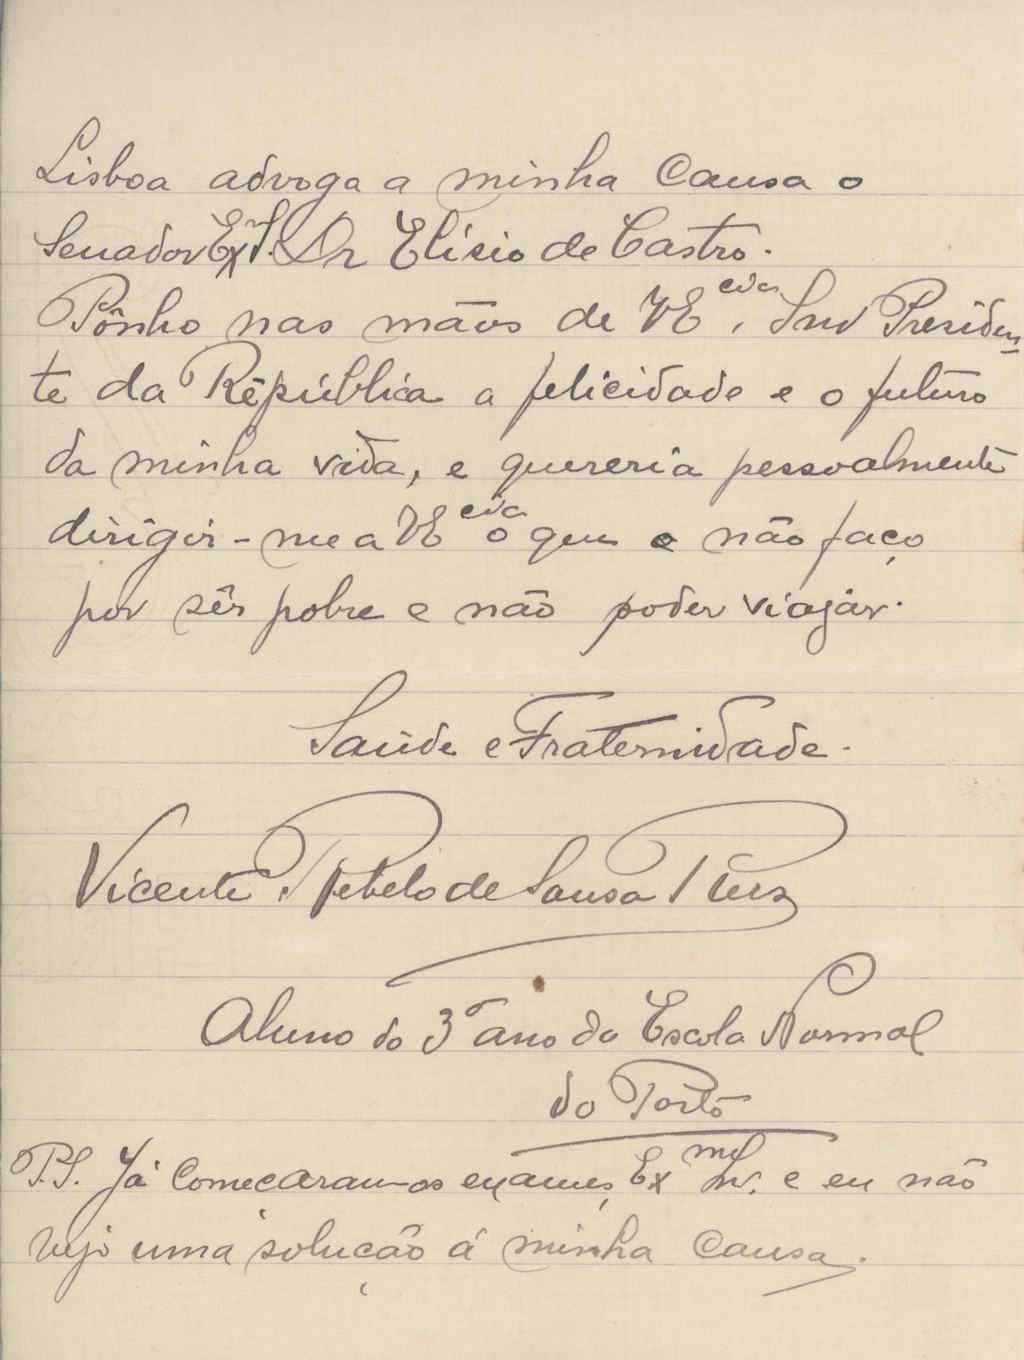 Lisboa advoga a minha Causa o
Senador Exmº Dr Elísio de Castro.
Pônho nas mãos de VE cia, Snr Presiden-
te da República a felicidade e o futuro
da minha vida, e quereria pessoalmente
dirigir-me a VE cia o que o não faço
por sêr pobre e não poder viajar.
Saúde e Fraternidade.
Vicente Rebelo de Sousa Pires
Aluno do 3º ano da Escola Normal
do Porto
P.S. Já Começaram os exames, Ex mº Snr. e eu não
vejo uma solução á minha Causa.